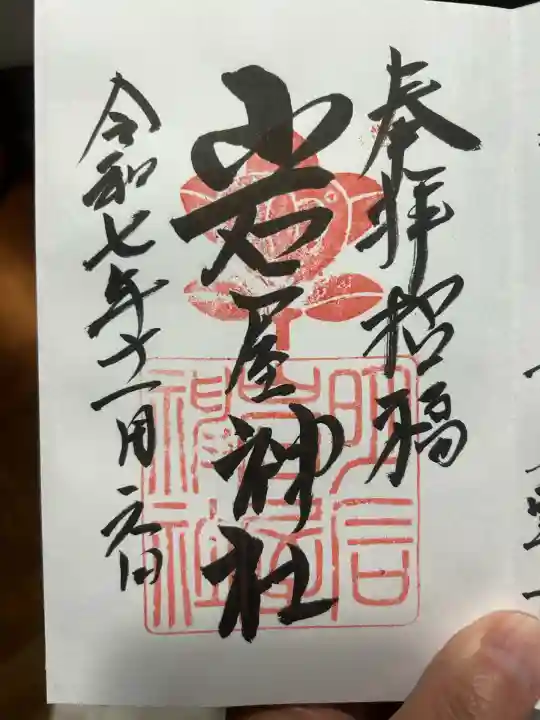 奉拝 招福
岩屋神社
令和七年十一月元日
明石岩屋神社